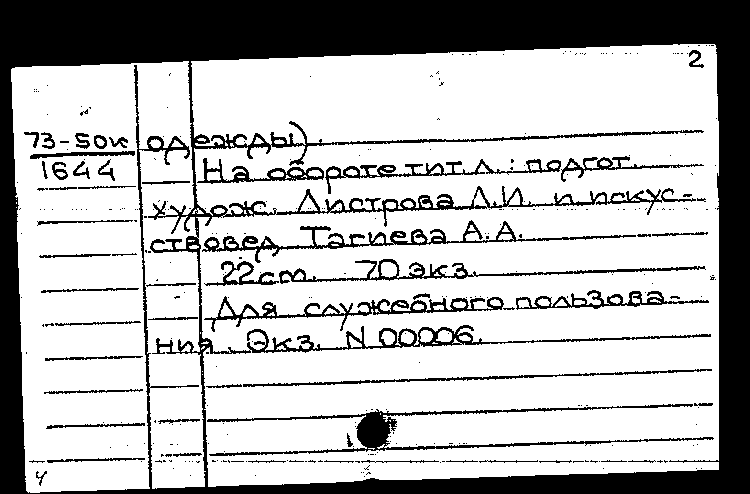 2
73-50к одежды).
1644 На обороте тит. л.: подгот.
худож. Листрова Л.И. и искус-
ствовед Тагиева А.А.
22 cm. 70 экз.
Для служебного пользова-
ния. Экз. N 00006.
4